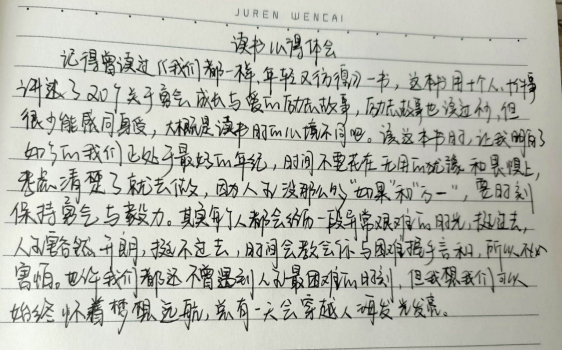 JUREN WENCAI
读书心得体会
记得曾读过《我们都一样,年轻又彷徨》一书,这本书用十个人、件事
讲述了20个关于勇气成长与爱的励志故事,励志故事也读过些,但
很少能感同身受,大概是读书时的心境不同吧。读这本书时,让我明白了
如今的我们正处于最好的年纪,时间不要花在无用的犹豫和畏惧上,
考虑清楚了就去做,因为人生没那么多"如果"和"万一",要时刻
保持勇气与毅力。其实每个人都会经历一段异常艰难的时光,挺过去,
人生豁然开朗,挺不过去,时间会教会你与困难握手言和,所以不必
害怕。也许我们都还不曾遇到人生最困难的时刻,但我想我们可以
始终怀着梦想远航,总有一天会穿越人海发光发亮。